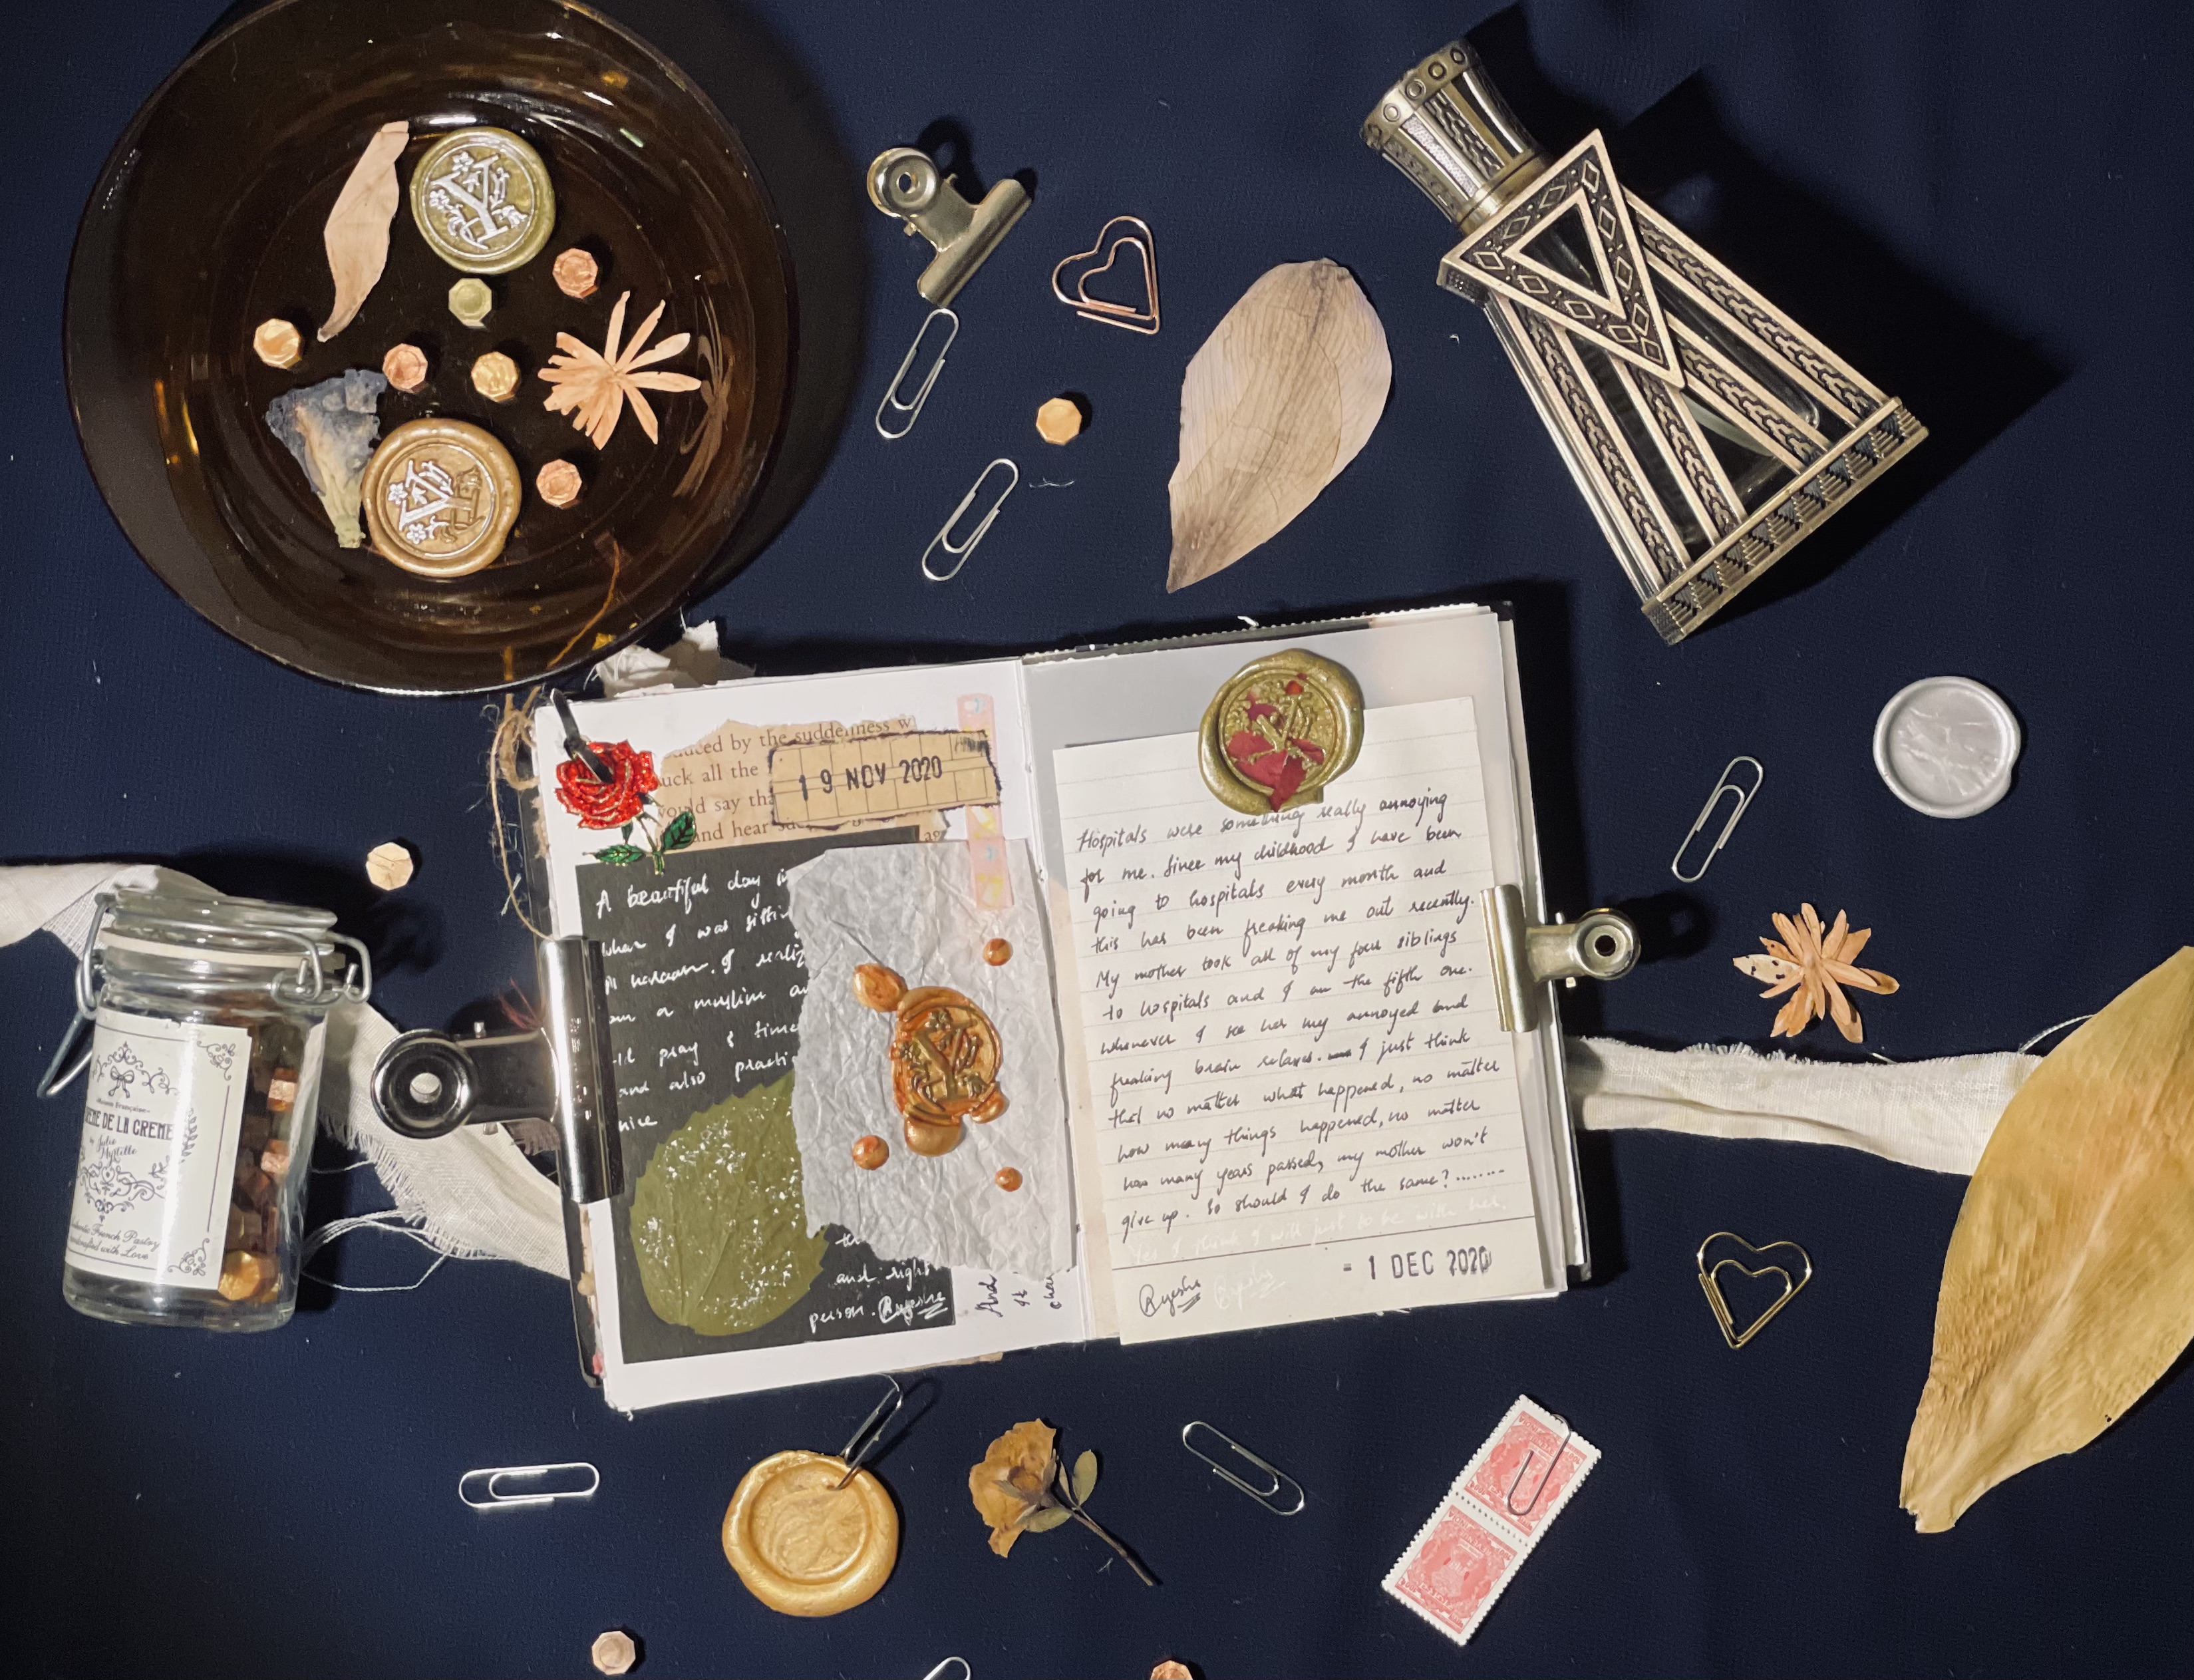 Y
Y
uced by the suddenness w
uck all the
would say tha
and hear
19 NOV 2020
A beautiful day
when I was sitti
I realiz
am a muslim
pray 5 time
and also practi
nice
Y
and right
person. Ayesha
And
it
Hospitals were something really annoying
for me. Since my childhood I have been
going to hospitals every month and
this has been freaking me out recently.
My mother took all of my four siblings
to hospitals and I am the fifth one.
whenever I see her my annoyed and
freaking brain relaxes. I just think
that no matter what happened, no matter
how many things happened, no matter
how many years passed, my mother won't
give up. So should I do the same?........
think I will just to be with her.
- 1 DEC 2020
Ayesha Ayesha
Maison Française
CREME DE LA CREME
by Julie
Myrtille
Authentic French Pastry
Handcrafted with Love